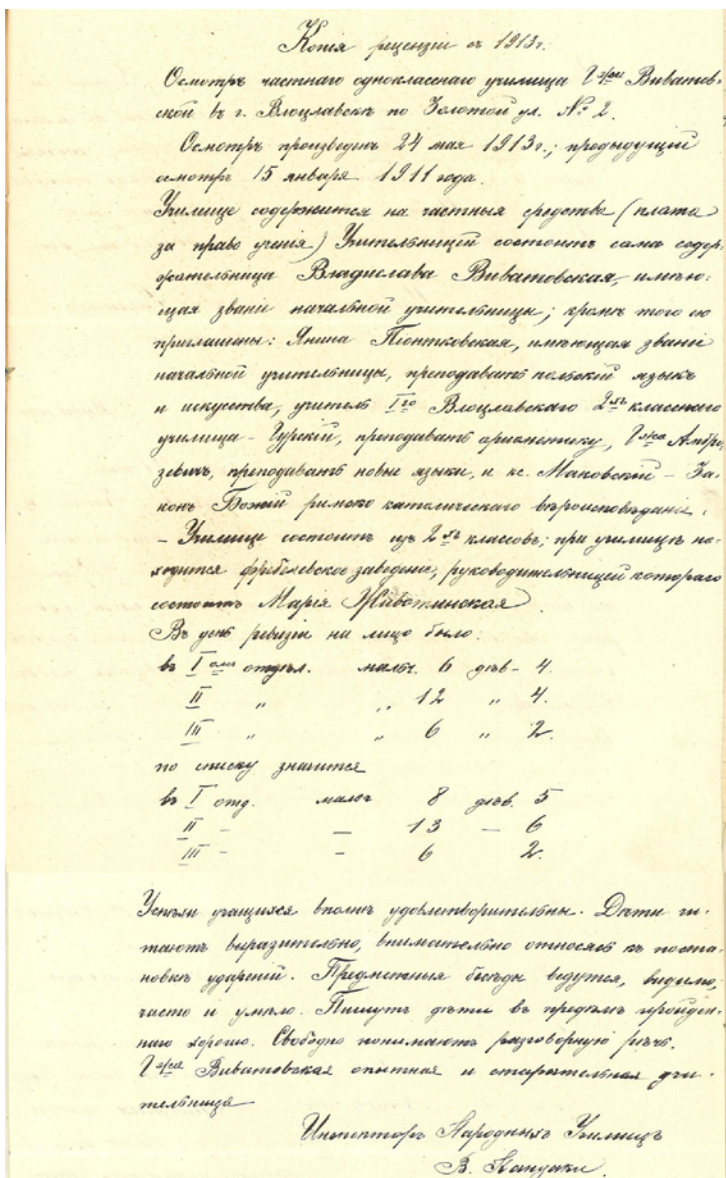 Копія рецензіи съ 1913г.
Осмотръ частнаго однокласнаго училища Г-жи Виватов-
ской въ г. Влоцлавскѣ по Золотой ул. № 2.
Осмотръ произведенъ 24 мая 1913г.; предыдущій
осмотръ 15 января 1911 года.
Училище содержится на частныя средства (плата
за право ученія) Учительницей состоитъ сама содер-
жательница Владислава Виватовская, имѣю-
щая званіе начальной учительницы; кромѣ того ею
приглашены: Янина Піонтковская, имѣющая званіе
начальной учительницы, преподаватъ польскій языкъ
и искусства, учитель Iго Влоцлавскаго 2хъ класснаго
училища - Гурскій, преподаватъ ариѳметику, Г-жа Амбро-
зевичъ, преподаватъ новые языки, и кс. Маковскій - За-
конъ Божій римско католическаго вѣроисповѣданія.
- Училище состоитъ изъ 2хъ классовъ; при училищѣ на-
ходится фребелевское заведеніе, руководительницей котораго
состоитъ Марія Животинская
Въ день ревизіи на лицо было:
въ I омъ отдѣл. мальч. 6 дѣв - 4.
II " " 12 " 4.
III " " 6 " 2.
по списку значится
въ I отд. мальч 8 дѣв. 5
II - - 13 - 6
III - - 6 2.
Успѣхи учащихся вполнѣ удовлетворительны. Дѣти чи-
таютъ выразительно, внимательно относясь къ поста-
новкѣ удареній. Предметныя бесѣды ведутся, видимо,
часто и умѣло. Пишутъ дѣти въ предѣлѣ пройден-
наго хорошо. Свободно понимаютъ разговорную рѣчь.
Г-жа Виватовская опытная и старательная учи-
тельница
Инспекторъ Народныхъ Училищъ
В.